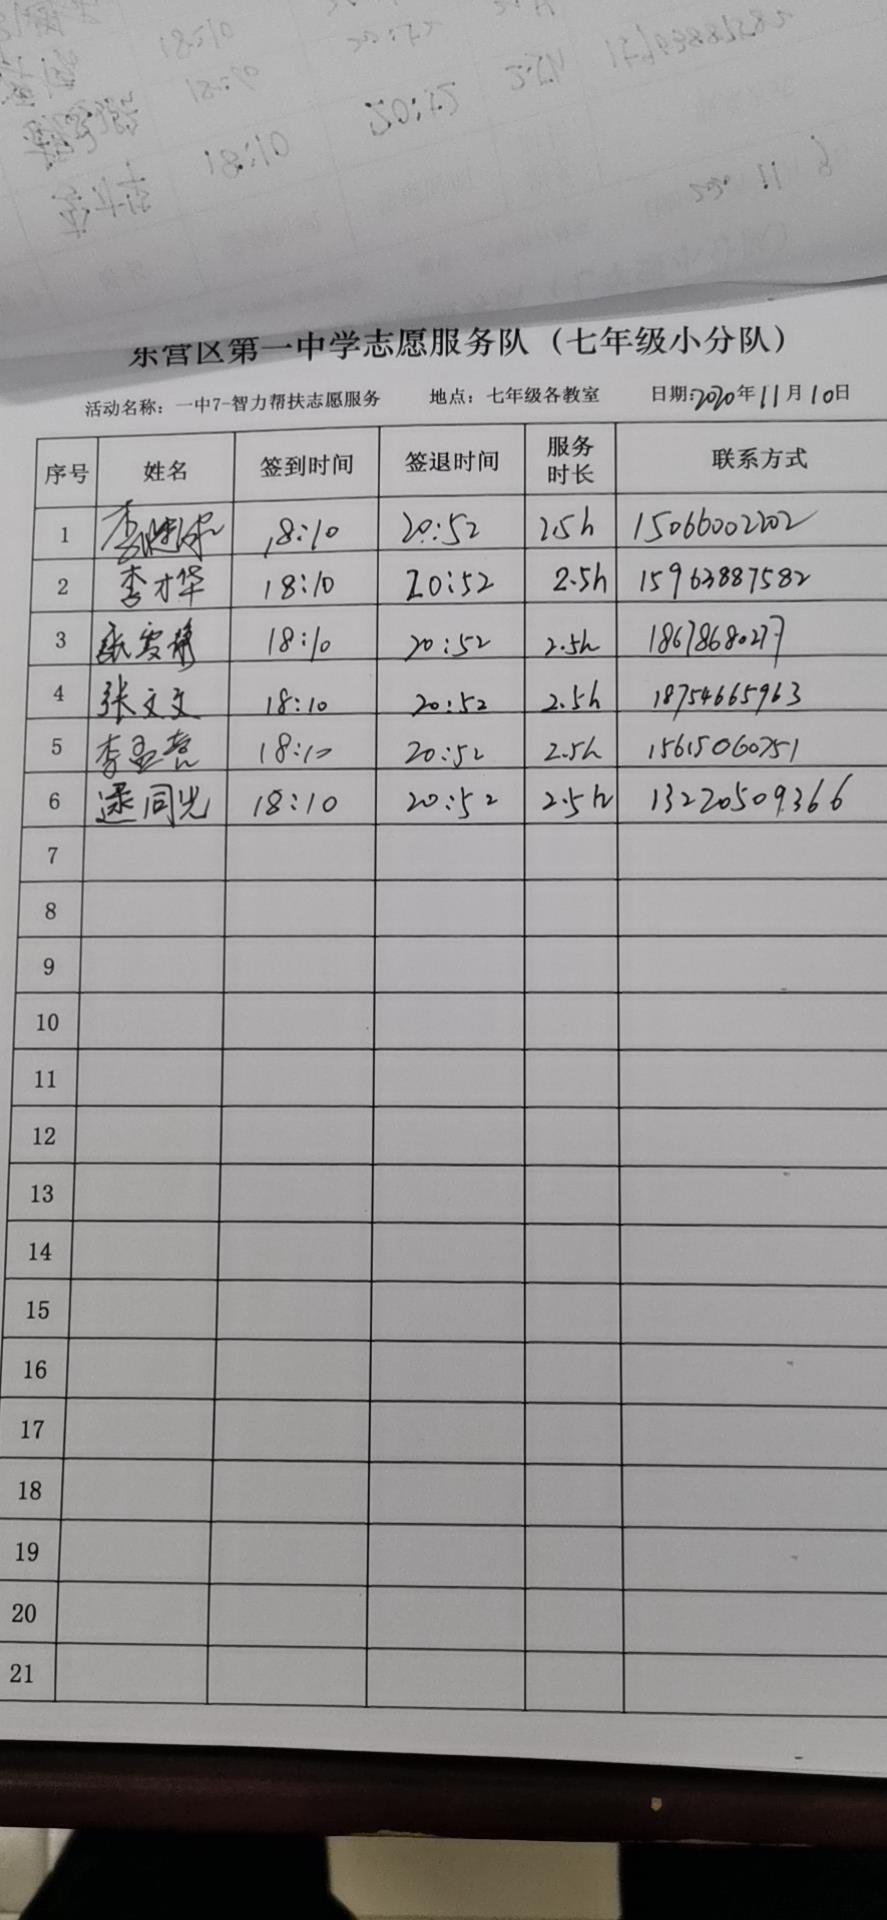 东营区第一中学志愿服务队（七年级小分队）
活动名称：一中7-智力帮扶志愿服务 地点：七年级各教室 日期：2020年11月10日
序号 姓名 签到时间 签退时间 服务时长 联系方式
1 18:10 20:52 2.5h 15066002202
2 李才华 18:10 20:52 2.5h 15963887582
3 18:10 20:52 2.5h 18678680277
4 张文文 18:10 20:52 2.5h 18754665963
5 李孟亮 18:10 20:52 2.5h 15615060751
6 逯同光 18:10 20:52 2.5h 13220509366
7
8
9
10
11
12
13
14
15
16
17
18
19
20
21